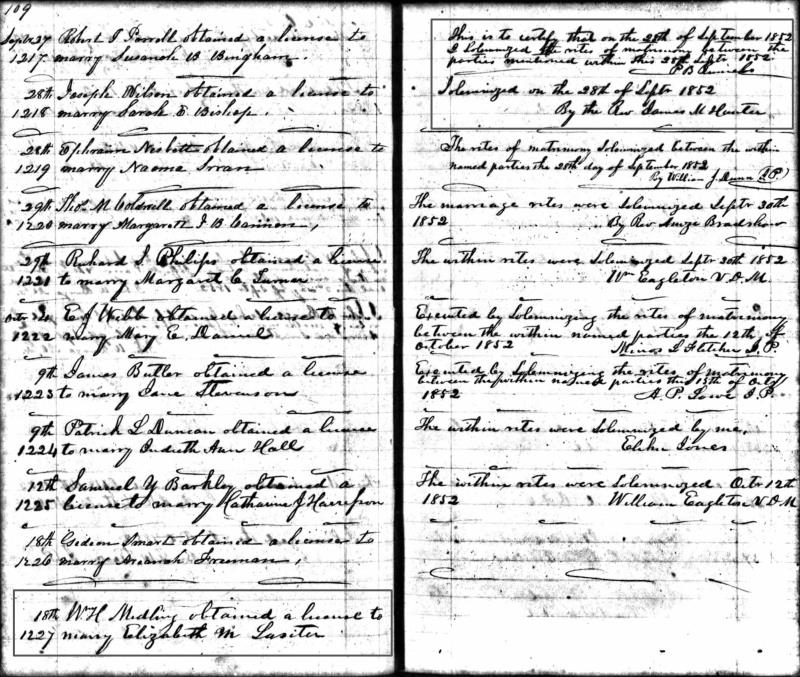 109
Sept 27 Robert I Powell obtained a license to
1217 marry Susanah B Bingham.
28th Joseph Wilson obtained a license to
1218 marry Sarah E Bishop.
28th Ephraim Nesbitt obtained a license to
1219 marry Naoma
29th Thos. M Coldwell obtained a license to
1220 marry Margarett I B Cannon,
29th Richard I Philips obtained a license
1221 to marry Margaret C Turner
Octr E J Webb obtained a license to
1222 marry Mary E. Daniel
9th James Butler obtained a license
1223 to marry Jane Stevenson
9th Patrick L Duncan obtained a license
1224 to marry Judieth Ann Hall
12th Samuel Y Barkley obtained a
1225 license to marry Katharine J
18th Gideon Smart obtained a license to
1226 marry Freeman,
18th WH Medling obtained a license to
1227 marry Elizabeth M Lasiter
This is to certify that on the 28th of September 1852
I Solemnized the rites of matrimony between the
parties mentioned within this 28th Septr. 1852
P B
Solemnized on the 28th of Septr 1852
By the Rev James M Hunter
The rites of matrimony Solemnized between the within
named parties the 28th day of September 1852
By William J. Dunn
The marriage rites were Solemnized Septr 30th
1852 By Rev Bradshaw
The within rites were Solemnized Septr 30th 1852
Wm Eagleton V.D.M.
Executed by Solemnizing the rites of matrimony
between the within named parties the 12th of
October 1852 Minos L Fletcher J.P.
Executed by Solemnizing the rites of matrimony
between the within named parties this 15th of Octo
1852 A. P. Lowe J P.
The within rites were Solemnized by me,
Elihu Jones
The within rites were Solemnized Octr 12th
1852 William Eagleton V.D.M